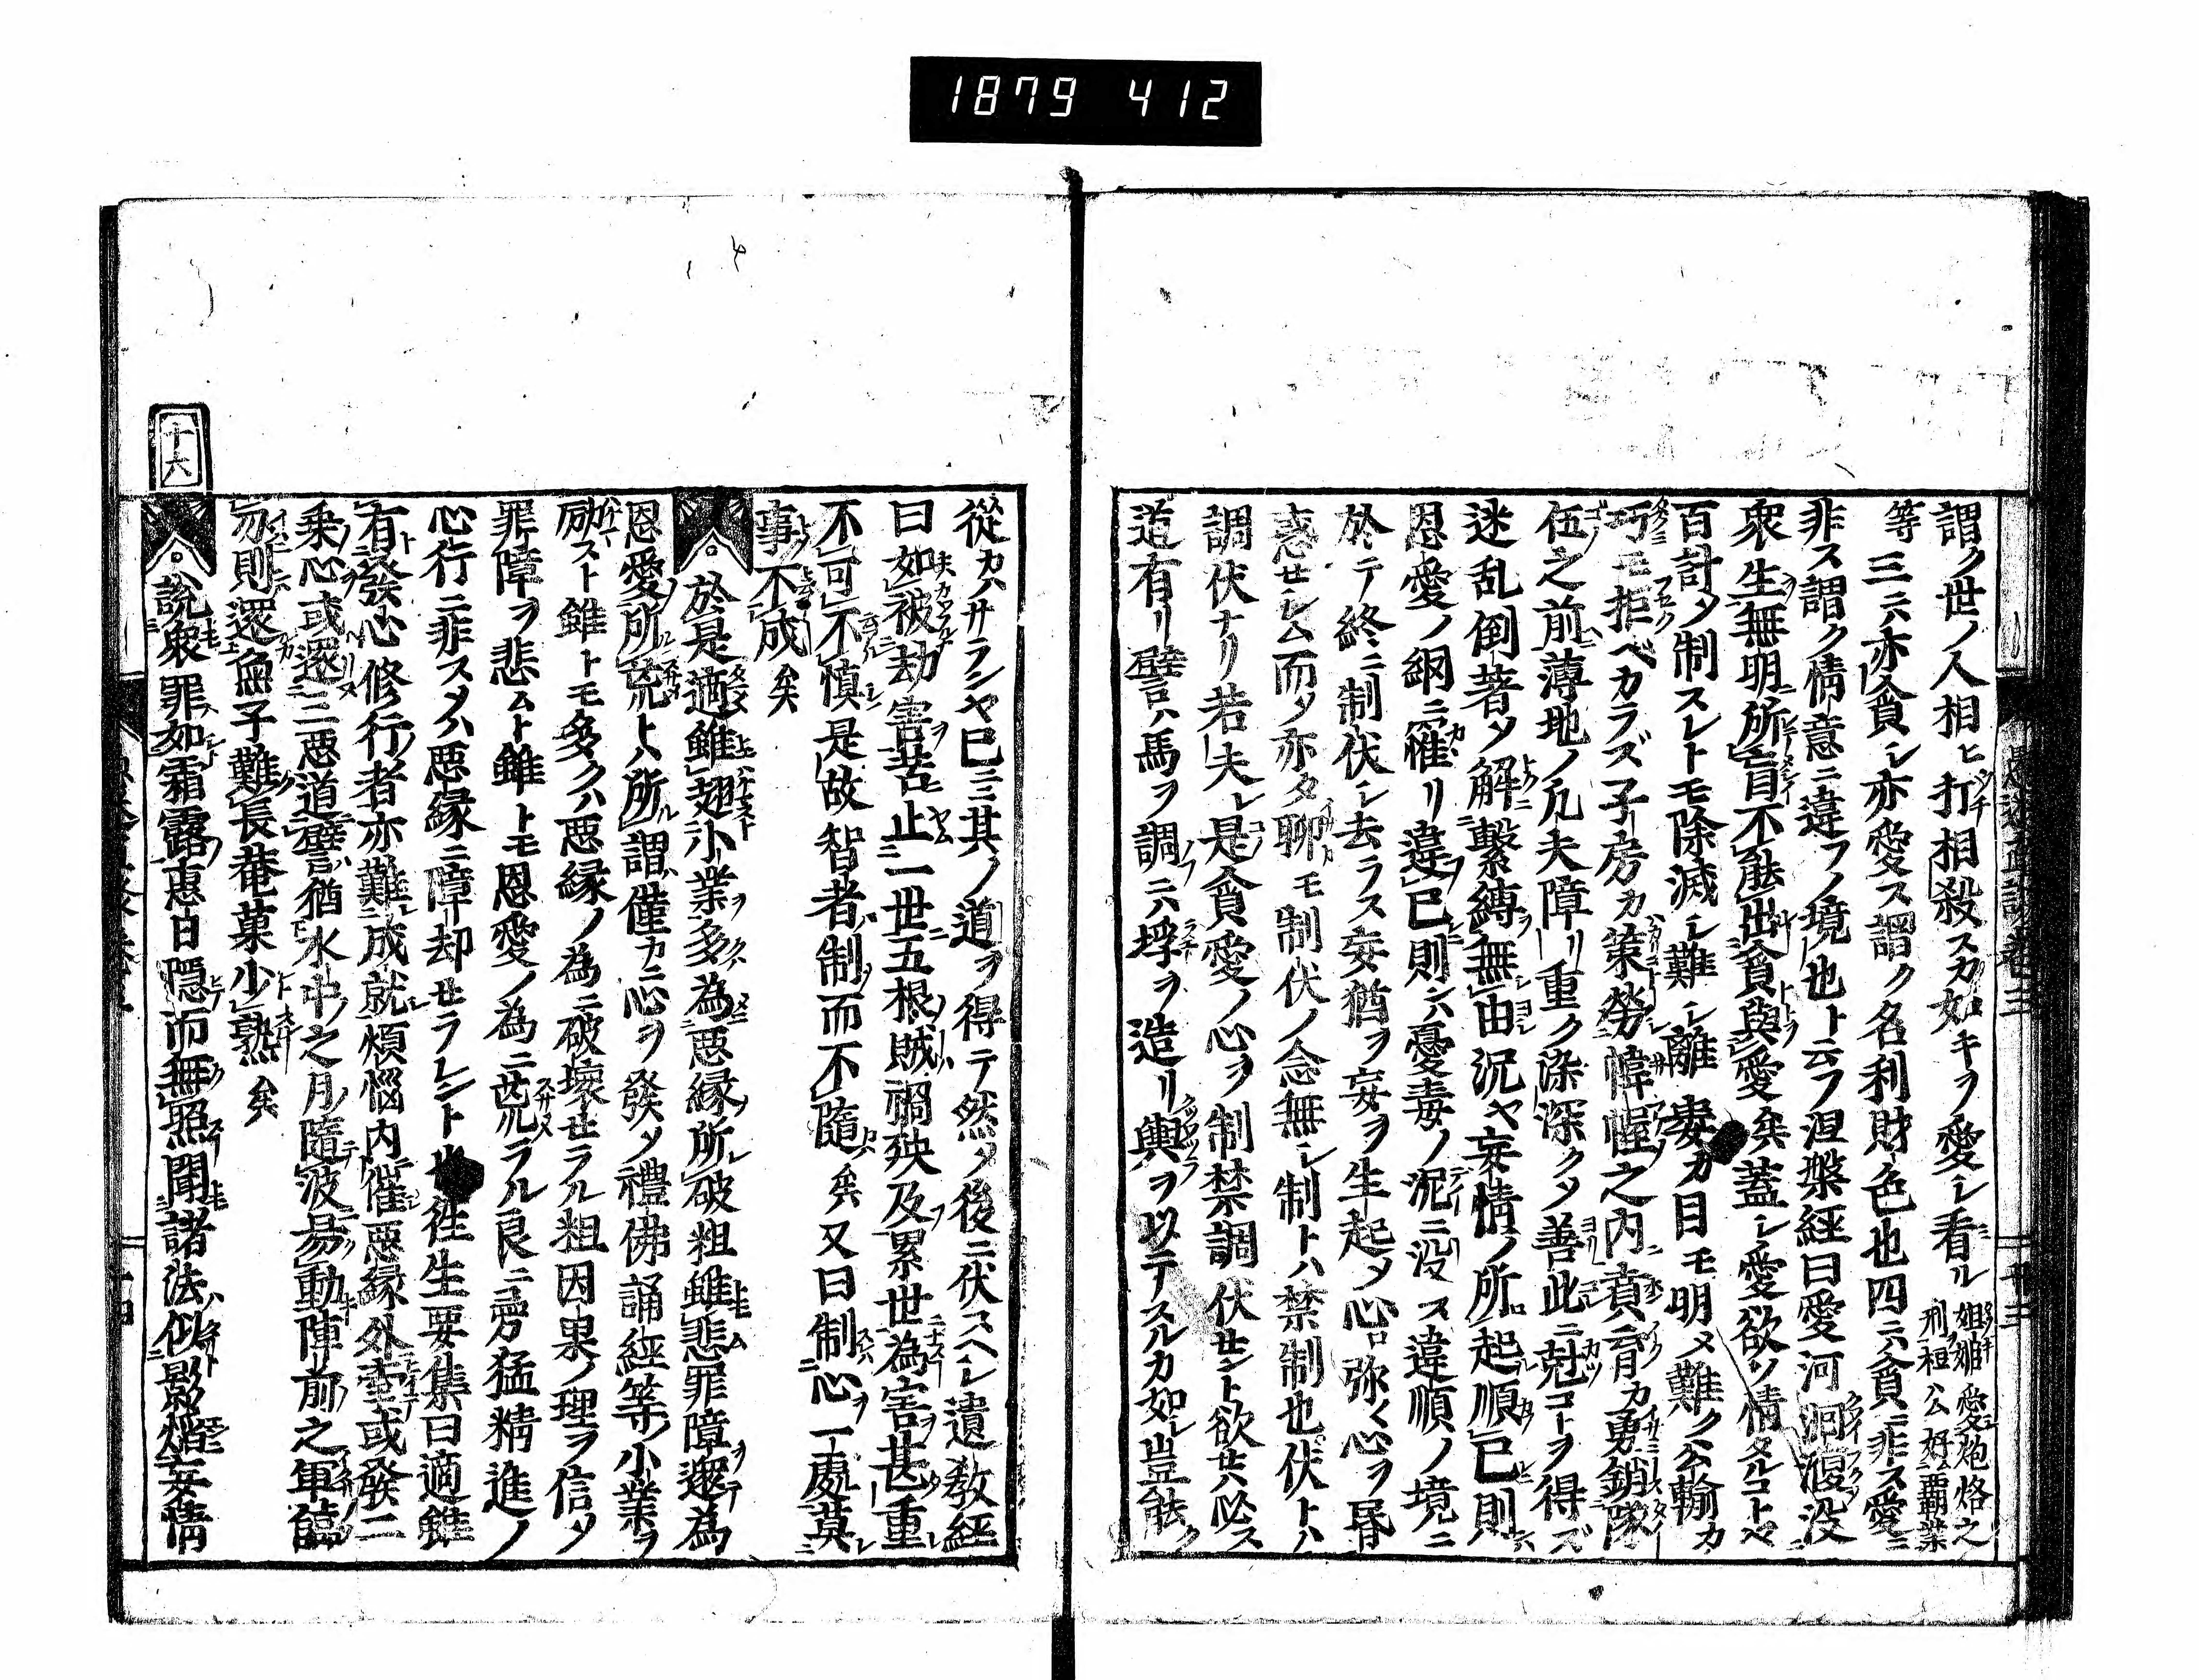 1879 412
謂ク世ノ人相ヒ打相殺スカ如キヲ愛シ看ル 妲妃愛炮烙之刑桓公好覇業
等 三六亦貪シ亦愛ス謂ク名利財色也四ニハ貪ニ非ス愛ニ
非ス謂ク情意ニ違フノ境也ト云フ涅槃経曰愛河洄澓没
衆生無明所盲不能出貪與愛矣蓋シ愛欲ノ情タルコトヤ
百計シテ制スレトモ除滅シ難シ離婁カ目モ明メ難ク公輸カ
巧モ拒ベカラズ子房カ策勞幃幄之内賁育カ勇銷隊
伍之前薄地ノ凡夫障リ重ク染深クシテ善此ニ尅コトヲ得ズ
迷乱倒著シテ解繫縛無由况ヤ妄情ノ所起順已則
恩愛ノ網ニ罹リ違已則ハ憂毒ノ泥ニ没ス違順ノ境ニ
於テ終ニ制伏シ去ラス妄猶ヲ妄ヲ生起シテ心弥〱心ヲ昏
惑セシム而シテ亦タ聊モ制伏ノ念無シ制トハ禁制也伏トハ
調伏ナリ若夫レ是貪愛ノ心ヲ制禁調伏セント欲セハ必ス
道有リ譬ハ馬ヲ調ニハ埒ヲ造リ輿ヲ以テスルカ如シ豈能ク
從カハサランヤ已ニ其ノ道ヲ得テ然シテ後ニ伏スヘシ遺教経
曰如被劫害苦止一世五根賊禍殃及累世為害甚重
不可不慎是故智者制而不隨矣又曰制心一處莫
事不成矣
於是適雖翅小業多為惡縁所破粗雖悲罪障還為
恩愛所𠒋トハ所謂僅カニ心ヲ發シテ禮佛誦経等ノ小業ヲ
励スト雖トモ多クハ悪縁ノ為ニ破壊セラル粗因果ノ理ヲ信シテ
罪障ヲ悲ムト雖トモ恩愛ノ為ニ𠒋ラル良ニ勇猛精進ノ
心行ニ非スンハ悪縁ニ障却セラレント也往生要集曰適雖
有發心修行者亦難成就煩悩内催悪縁外牽或發二
乗心或還三惡道譬猶水中之月隨波易動陣前之軍臨
刃則還魚子難長菴菓少熟矣
十六
說衆罪如霜露惠日隱而無照聞諸法似影焰妄情